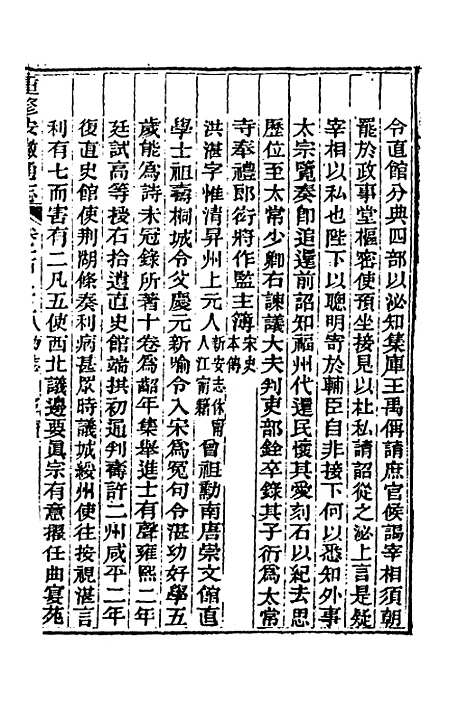 令直館分典四部以泌知集庫王禹偁請庶官候謁宰相須朝
罷於政事堂樞密使預坐接見以杜私請詔從之泌上言是疑
宰相以私也陛下以聰明寄於輔臣自非接下何以悉知外事
太宗覽奏即追還前詔知福州代還民懷其愛刻石以紀去思
歷位至太常少卿右諫議大夫判吏部銓卒錄其子衍為太常
寺奉禮郎衍將作監主簿宋史本傳
洪湛字惟清昇州上元人新安志休甯人江南籍曾祖勳南唐崇文館直
學士祖壽桐城令父慶元新喻令入宋為冤句令湛幼好學五
歲能為詩未冠錄所著十卷為齠年集舉進士有聲雍熙二年
廷試高等授石拾遺直史館端拱初通判壽許二州咸平二年
復直史館使荆湖條奏利病甚眾時議城綏州使往按視湛言
利有七而害有二凡五使西北議邊要眞宗有意擢任曲宴苑
重修安徽通志